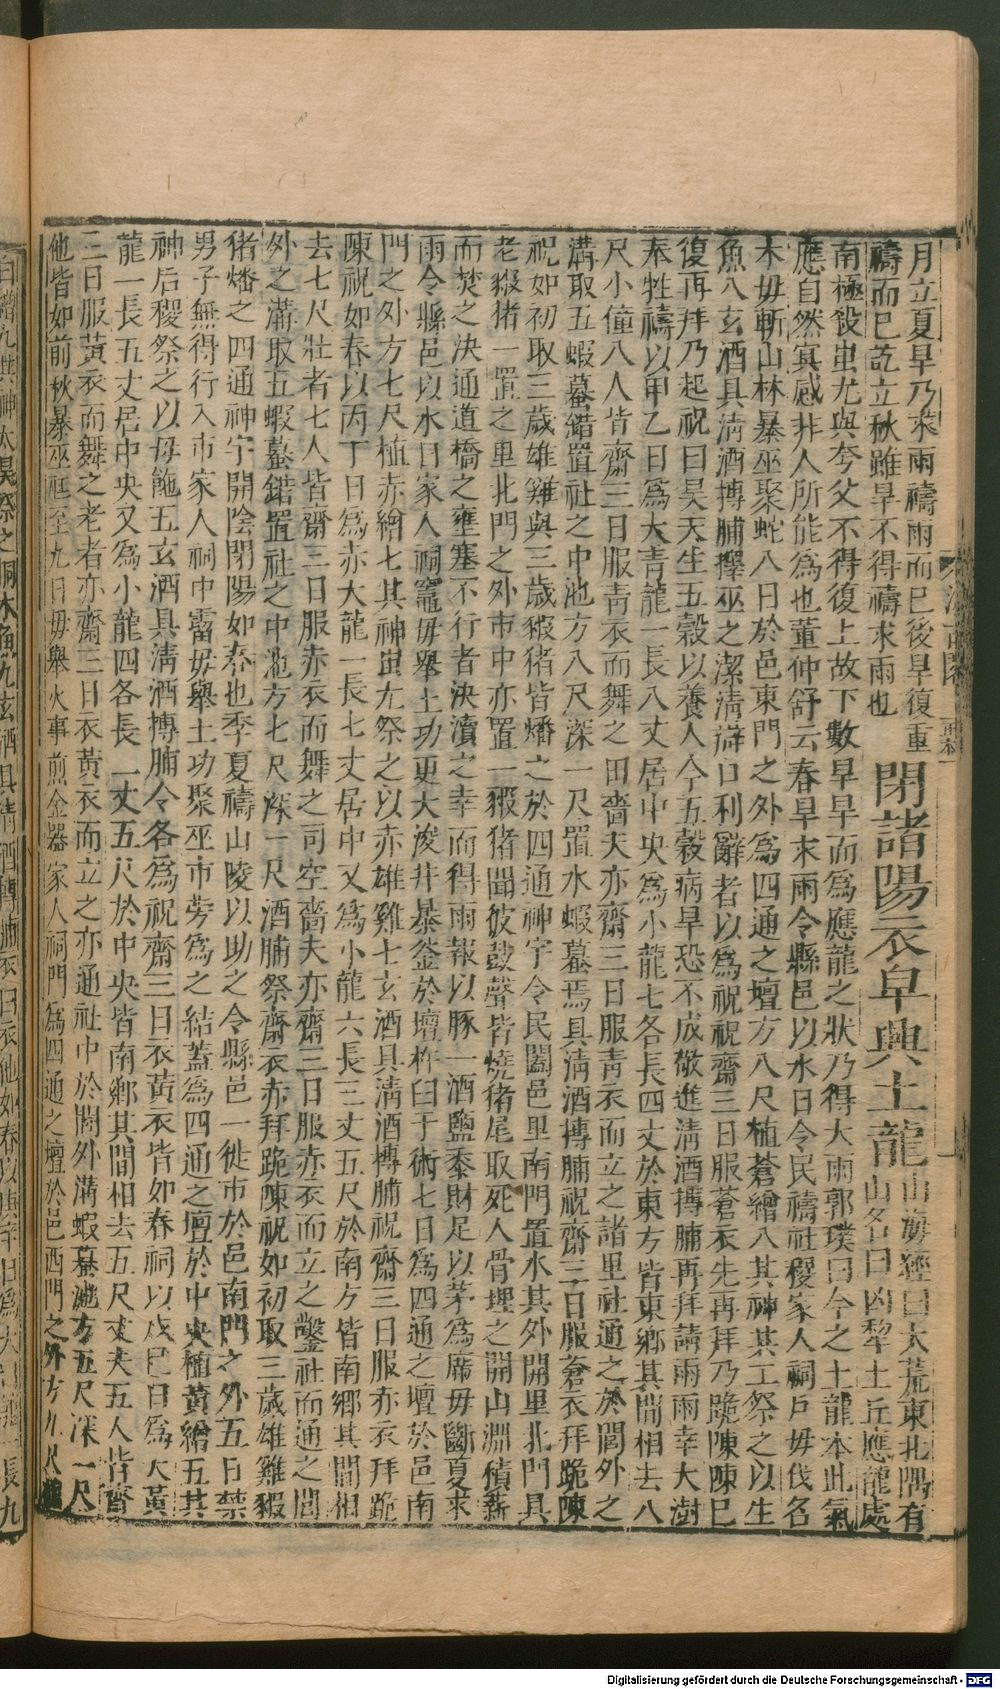 月立夏旱乃求雨禱雨而已後旱復重
禱而已訖立秋雖旱不得禱求雨也
閉諸陽衣皁興土龍
山海經曰大荒東北隅有
山名曰凶犁土丘應龍處
南極殺蚩尤與夸父不得復上故下數旱旱而為應龍之狀乃得大雨郭璞曰今之土龍本此氣
應自然冥感非人所能為也董仲舒云春旱求雨令縣邑以水日令民禱社稷家人祠戶毋伐名
木毋斬山林暴巫聚蛇八日於邑東門之外為四通之壇方八尺植蒼繒八其神共工祭之以生
魚八玄酒具清酒搏脯擇巫之潔清辯口利辭者以為祝祝齋三日服蒼衣先再拜乃跪陳陳已
復再拜乃起祝曰昊天生五穀以養人今五穀病旱恐不成敬進清酒搏脯再拜請雨雨幸大澍
奉牲禱以甲乙日為大青龍一長八丈居中央為小龍七各長四丈於東方皆東鄉其間相去八
尺小僮八人皆齋三日服青衣而舞之田嗇夫亦齋三日服青衣而立之諸里社通之於閭外之
溝取五蝦蟇錯置社之中池方八尺深一尺置水蝦蟇焉具清酒搏脯祝齋三日服蒼衣拜跪陳
祝如初取三歲雄雞與三歲豭猪皆燔之於四通神宇令民闔邑里南門置水其外開里北門具
老豭猪一置之里北門之外市中亦置一豭猪聞彼鼓聲皆燒猪尾取死人骨埋之開山淵積薪
而焚之決通道橋之壅塞不行者決瀆之幸而得雨報以豚一酒鹽黍財足以茅為席毋斷夏求
雨令縣邑以水日家人祠竈毋舉土功更大浚井暴釜於壇杵臼于術七日為四通之壇於邑南
門之外方七尺植赤繒七其神蚩尤祭之以赤雄雞七玄酒具清酒搏脯祝齋三日服赤衣拜跪
陳祝如春以丙丁日為赤大龍一長七丈居中又為小龍六長三丈五尺於南方皆南鄉其間相
去七尺壯者七人皆齋三日服赤衣而舞之司空嗇夫亦齋三日服赤衣而立之鑿社而通之閭
外之溝取五蝦蟇錯置社之中池方七尺深一尺酒脯祭齋衣赤拜跪陳祝如初取三歲雄雞豭
猪燔之四通神宇開陰閉陽如春也季夏禱山陵以助之令縣邑一徙市於邑南門之外五日禁
男子無得行入市家人祠中霤毋舉土功聚巫市旁為之結蓋為四通之壇於中央植黃繒五其
神后稷祭之以母𩛿五玄酒具清酒搏脯令各為祝齋三日衣黃衣皆如春祠以戊巳日為大黃
龍一長五丈居中央又為小龍四各長一丈五尺於中央皆南鄉其間相去五尺丈夫五人皆齋
三日服黃衣而舞之老者亦齋三日衣黃衣而立之亦通社中於閭外溝蝦蟇池方五尺深一尺
他皆如前秋暴巫尫至九日毋舉火事煎金器家人祠門為四通之壇於邑西門之外方九尺植